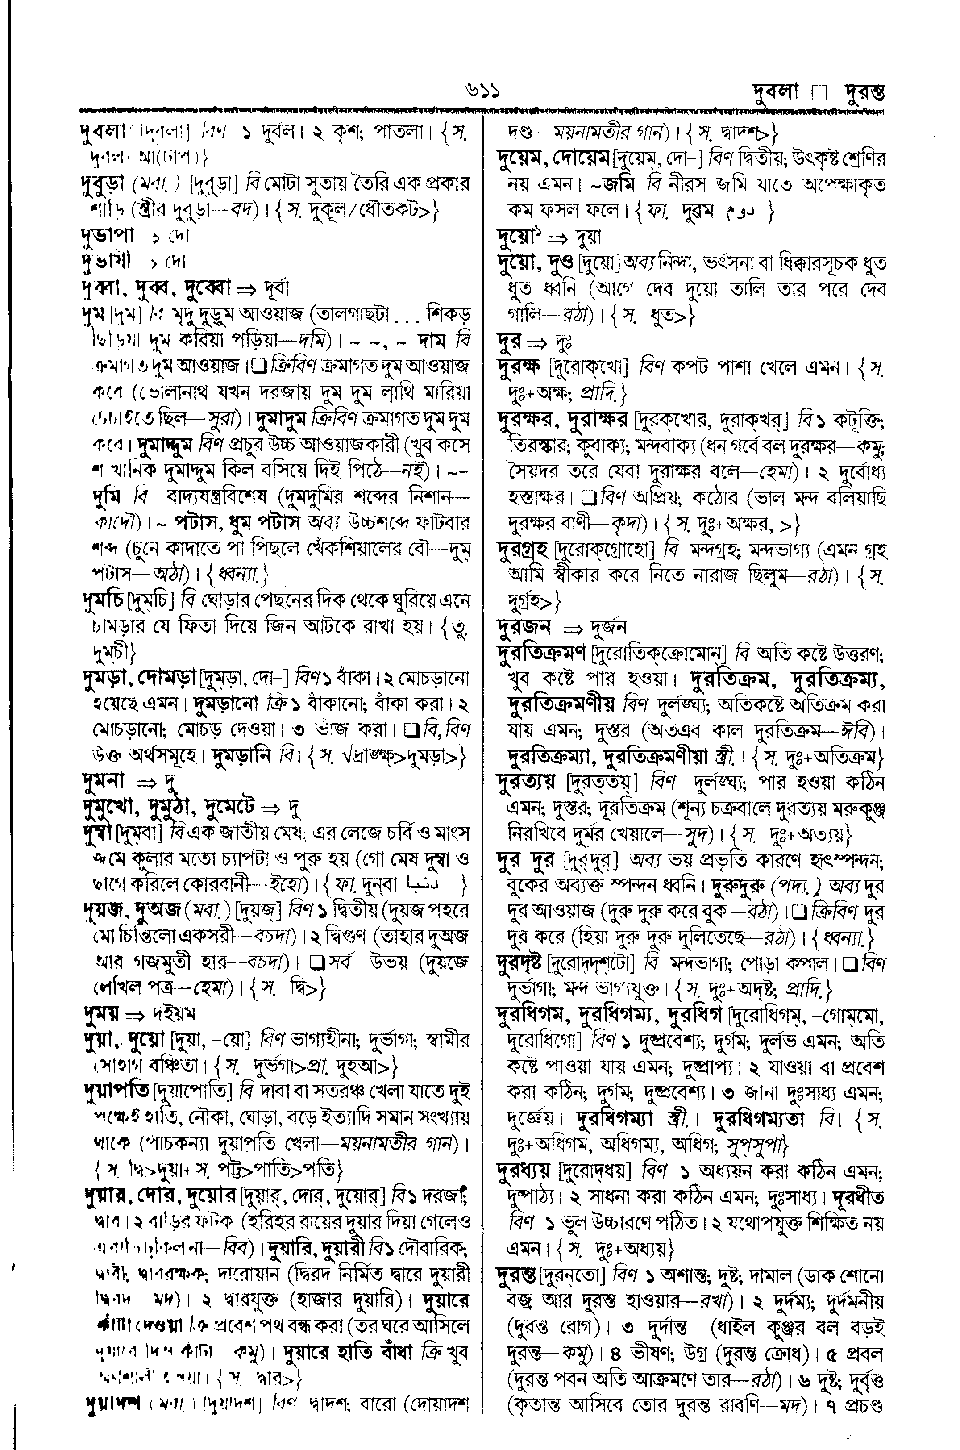 ৬১১
দুবলা □ দুরন্ত
দুবলা [দুবলা] বিণ ১ দুর্বল। ২ কৃশ; পাতলা। {স.
দুবুড়া (মবা.) [দুবুড়া] বি মোটা সুতায় তৈরি এক প্রকার
শাড়ি (স্ত্রীর দুবুড়া—বদ)। {স. দুকূল/ধৌতকট>}
দুভাপা > দো
দুভাষী > দো
দুব্বা, দুব্ব, দুব্বো ⇒ দূর্বা
দুম [দুম্] বি মৃদু দুড়ুম আওয়াজ (তালগাছটা . . . শিকড়
ছিঁড়িয়া দুম করিয়া পড়িয়া—দমি)। ~ ~, ~ দাম বি
ক্রমাগত দুম আওয়াজ। □ ক্রিবিণ ক্রমাগত দুম আওয়াজ
করে (ভোলানাথ যখন দরজায় দুম দুম লাথি মারিয়া
চেঁচাইতেছিল—সুরা)। দুমাদুম ক্রিবিণ ক্রমাগত দুম দুম
করে। দুমাদ্দুম বিণ প্রচুর উচ্চ আওয়াজকারী (খুব কসে
শ খানিক দুমাদ্দুম কিল বসিয়ে দিই পিঠে—নই)। ~~
দুমি বি বাদ্যযন্ত্রবিশেষ (দুমদুমির শব্দের নিশান—
কাদৌ)। ~ পটাস, ধুম পটাস অব্য উচ্চশব্দে ফাটবার
শব্দ (চুনে কাদাতে পা পিছলে খেঁকশিয়ালের বৌ—দুম্
পটাস—অঠা)। {ধ্বন্যা.}
দুমচি [দুমচি] বি ঘোড়ার পেছনের দিক থেকে ঘুরিয়ে এনে
চামড়ার যে ফিতা দিয়ে জিন আটকে রাখা হয়। {তু.
দুমচী}
দুমড়া, দোমড়া [দুমড়া, দো-] বিণ ১ বাঁকা। ২ মোচড়ানো
হয়েছে এমন। দুমড়ানো ক্রি ১ বাঁকানো; বাঁকা করা। ২
মোচড়ানো; মোচড় দেওয়া। ৩ ভাঁজ করা। □ বি, বিণ
উক্ত অর্থসমূহে। দুমড়ানি বি। {স. √দ্রাঙ্ক্ষ>দুমড়া>}
দুমনা ⇒ দু
দুমুখো, দুমুঠা, দুমেটে ⇒ দু
দুম্বা [দুম্‌বা] বি এক জাতীয় মেষ; এর লেজে চর্বি ও মাংস
জমে কুলার মতো চ্যাপটা ও পুরু হয় (গো মেষ দুম্বা ও
ছাগে করিলে কোরবানী—ইহো)। {ফা. দুন্‌বা دنبا }
দুয়জ, দুঅজ (মবা.) [দুয়জ্] বিণ ১ দ্বিতীয় (দুয়জ পহরে
মো চিন্তিলো একসরী—বচদা)। ২ দ্বিগুণ (তাহার দুঅজ
আর গজমুতী হার—বচদা)। □ সর্ব উভয় (দুয়জে
লেখিল পত্র—হেমা)। {স. দ্বি>}
দুময় ⇒ দইয়ম
দুয়া, দুয়ো [দুয়া, -য়ো] বিণ ভাগ্যহীনা; দুর্ভাগা; স্বামীর
সোহাগ বঞ্চিতা। {স. দুর্ভগা>প্রা. দুহআ>}
দুয়াপতি [দুয়াপোতি] বি দাবা বা সতরঞ্চ খেলা যাতে দুই
পক্ষেই হাতি, নৌকা, ঘোড়া, বড়ে ইত্যাদি সমান সংখ্যায়
থাকে (পাচকন্যা দুয়াপতি খেলা—ময়নামতীর গান)।
{স. দ্বি>দুয়া+ স. পট্ট>পাত্তি>পতি}
দুয়ার, দোর, দুয়োর [দুয়ার্, দোর্, দুয়োর্] বি ১ দরজা;
দ্বার। ২ বাড়ির ফটক (হরিহর রায়ের দুয়ার দিয়া গেলেও
না—বিব)। দুয়ারি, দুয়ারী বি ১ দৌবারিক;
দ্বারী, দ্বাররক্ষক; দারোয়ান (দ্বিরদ নির্মিত দ্বারে দুয়ারী
দ্বিরদ—মদ)। ২ দ্বারযুক্ত (হাজার দুয়ারি)। দুয়ারে
কাঁটা দেওয়া ক্রি প্রবেশ পথ বন্ধ করা (তর ঘরে আসিলে
দুয়ারে দিব কাঁটা—কমু)। দুয়ারে হাতি বাঁধা ক্রি খুব
{স. দ্বার>}
দুয়াদশ (মবা.) [দুয়াদশ] বিণ দ্বাদশ; বারো (দোয়াদশ
দণ্ড ময়নামতীর গান)। {স. দ্বাদশ>}
দুয়েম, দোয়েম [দুয়েম্, দো-] বিণ দ্বিতীয়; উৎকৃষ্ট শ্রেণির
নয় এমন। ~জমি বি নীরস জমি যাতে অপেক্ষাকৃত
কম ফসল ফলে। {ফা. দুৱম دوم }
দুয়ো২ ⇒ দুয়া
দুয়ো, দুও [দুয়ো] অব্য নিন্দা, ভর্ৎসনা বা ধিক্কারসূচক ধুত
ধুত ধ্বনি (আগে দেব দুয়ো তালি তার পরে দেব
গালি—রঠা)। {স. ধুত>}
দুর ⇒ দুঃ
দুরক্ষ [দুরোক্‌খো] বিণ কপট পাশা খেলে এমন। {স.
দুঃ+অক্ষ; প্রাদি.}
দুরক্ষর, দুরাক্ষর [দুরক্‌খোর্, দুরাক্‌খর্] বি ১ কটূক্তি;
তিরস্কার; কুবাক্য; মন্দবাক্য (ধন গর্বে বল দুরক্ষর—কমু;
সৈয়দর তরে যেবা দুরাক্ষর বলে—হেমা)। ২ দুর্বোধ্য
হস্তাক্ষর। □ বিণ অপ্রিয়; কঠোর (ভাল মন্দ বলিয়াছি
দুরক্ষর বাণী—কৃদা)। {স. দুঃ+অক্ষর, >}
দুরগ্রহ [দুরোক্‌গ্রোহো] বি মন্দগ্রহ; মন্দভাগ্য (এমন গ্রহ
আমি স্বীকার করে নিতে নারাজ ছিলুম—রঠা)। {স.
দুর্গ্রহ>}
দুরজন ⇒ দুর্জন
দুরতিক্রমণ [দুরোতিক্‌ক্রোমোন্] বি অতি কষ্টে উত্তরণ;
খুব কষ্টে পার হওয়া। দুরতিক্রম, দুরতিক্রম্য,
দুরতিক্রমণীয় বিণ দুর্লঙ্ঘ্য; অতিকষ্টে অতিক্রম করা
যায় এমন; দুস্তর (অতএব কাল দুরতিক্রম—ঈবি)।
দুরতিক্রম্যা, দুরতিক্রমণীয়া স্ত্রী.। {স. দুঃ+অতিক্রম}
দুরত্যয় [দুরত্‌তয়্] বিণ দুর্লঙ্ঘ্য; পার হওয়া কঠিন
এমন; দুস্তর; দুরতিক্রম (শূন্য চক্রবালে দুরত্যয় মরুকুঞ্জ
নিরখিবে দুর্মর খেয়ালে—সুদ)। {স. দুঃ+অত্যয়}
দুর দুর [দুর্‌দুর্] অব্য ভয় প্রভৃতি কারণে হৃৎস্পন্দন;
বুকের অব্যক্ত স্পন্দন ধ্বনি। দুরুদুরু (পদ্য.) অব্য দুর
দুর আওয়াজ (দুরু দুরু করে বুক—রঠা)। □ ক্রিবিণ দুর
দুর করে (হিয়া দুরু দুরু দুলিতেছে—রঠা)। {ধ্বন্যা.}
দুরদৃষ্ট [দুরোদ্‌দৃশ্‌টো] বি মন্দভাগ্য; পোড়া কপাল। □ বিণ
দুর্ভাগা; মন্দ ভাগ্যযুক্ত। {স. দুঃ+অদৃষ্ট; প্রাদি.}
দুরধিগম, দুরধিগম্য, দুরধিগ [দুরোধিগম্, -গোম্‌মো,
দুরোধিগো] বিণ ১ দুষ্প্রবেশ্য; দুর্গম; দুর্লভ এমন; অতি
কষ্টে পাওয়া যায় এমন; দুষ্প্রাপ্য। ২ যাওয়া বা প্রবেশ
করা কঠিন; দুর্গম; দুষ্প্রবেশ্য। ৩ জানা দুঃসাধ্য এমন;
দুর্জ্ঞেয়। দুরধিগম্যা স্ত্রী.। দুরধিগম্যতা বি। {স.
দুঃ+অধিগম, অধিগম্য, অধিগ; সুপ্‌সুপা}
দুরধ্যয় [দুরোদ্‌ধয়্] বিণ ১ অধ্যয়ন করা কঠিন এমন;
দুষ্পাঠ্য। ২ সাধনা করা কঠিন এমন; দুঃসাধ্য। দূরধীত
বিণ ১ ভুল উচ্চারণে পঠিত। ২ যথোপযুক্ত শিক্ষিত নয়
এমন। {স. দুঃ+অধ্যয়}
দুরন্ত [দুরন্‌তো] বিণ ১ অশান্ত; দুষ্ট; দামাল (ডাক শোনো
বজ্র আর দুরন্ত হাওয়ার—রখা)। ২ দুর্দম্য; দুর্দমনীয়
(দুরন্ত রোগ)। ৩ দুর্দান্ত (ধাইল কুঞ্জর বল বড়ই
দুরন্ত—কমু)। ৪ ভীষণ; উগ্র (দুরন্ত ক্রোধ)। ৫ প্রবল
(দুরন্ত পবন অতি আক্রমণে তার—রঠা)। ৬ দুষ্ট; দুর্বৃত্ত
(কৃতান্ত আসিবে তোর দুরন্ত রাবণি—মদ)। ৭ প্রচণ্ড